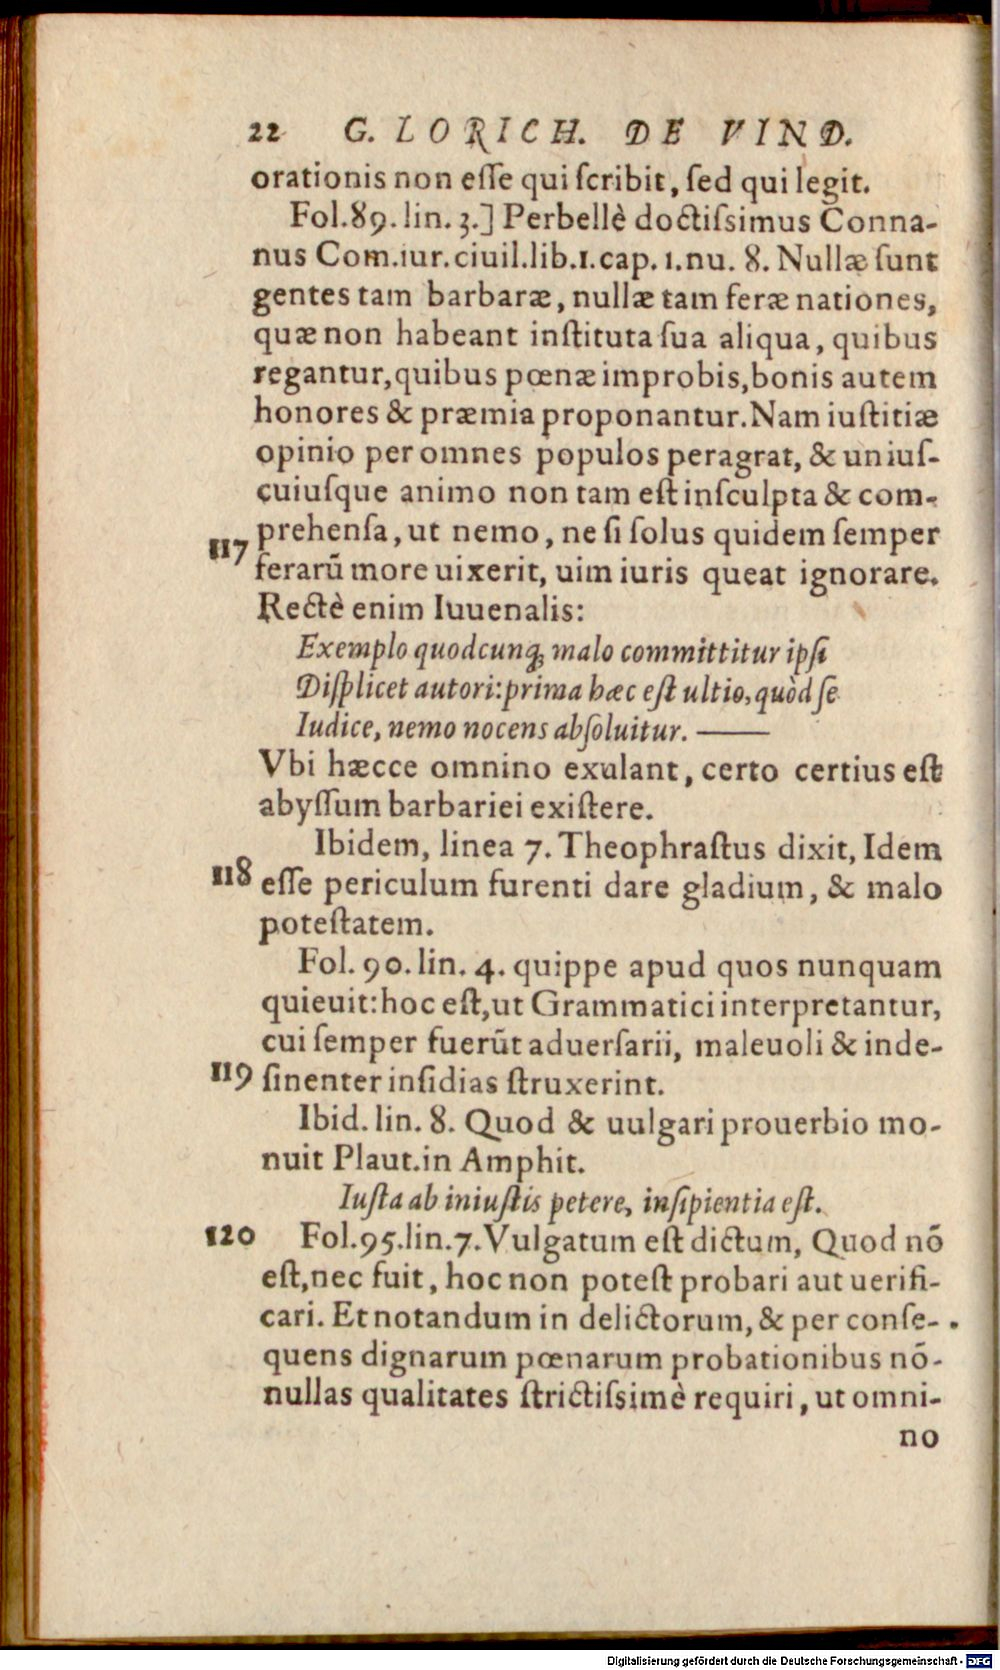 22 G. LORICH. DE VIND.
orationis non esse qui scribit, sed qui legit.
Fol. 89. lin. 3.] Perbellè doctissimus Conna-
nus Com. iur. ciuil. lib. 1. cap. 1. nu. 8. Nullæ sunt
gentes tam barbaræ, nullæ tam feræ nationes,
quæ non habeant instituta sua aliqua, quibus
regantur, quibus pœnæ improbis, bonis autem
honores & præmia proponantur. Nam iustitiæ
opinio per omnes populos peragrat, & unius-
cuiusque animo non tam est insculpta & com-
prehensa, ut nemo, ne si solus quidem semper
117 ferarũ more uixerit, uim iuris queat ignorare.
Rectè enim Iuuenalis:
Exemplo quodcunq; malo committitur ipsi
Displicet autori: prima hæc est ultio, quòd se
Iudice, nemo nocens absoluitur. ——
Vbi hæcce omnino exulant, certo certius est
abyssum barbariei existere.
Ibidem, linea 7. Theophrastus dixit, Idem
118 esse periculum furenti dare gladium, & malo
potestatem.
Fol. 90. lin. 4. quippe apud quos nunquam
quieuit: hoc est, ut Grammatici interpretantur,
cui semper fuerũt aduersarii, maleuoli & inde-
119 sinenter insidias struxerint.
Ibid. lin. 8. Quod & uulgari prouerbio mo-
nuit Plaut. in Amphit.
Iusta ab iniustis petere, insipientia est.
120 Fol. 95. lin. 7. Vulgatum est dictum, Quod nõ
est, nec fuit, hoc non potest probari aut uerifi-
cari. Et notandum in delictorum, & per conse-
quens dignarum pœnarum probationibus nõ-
nullas qualitates strictissimè requiri, ut omni-
no
Digitalisierung gefördert durch die Deutsche Forschungsgemeinschaft - DFG